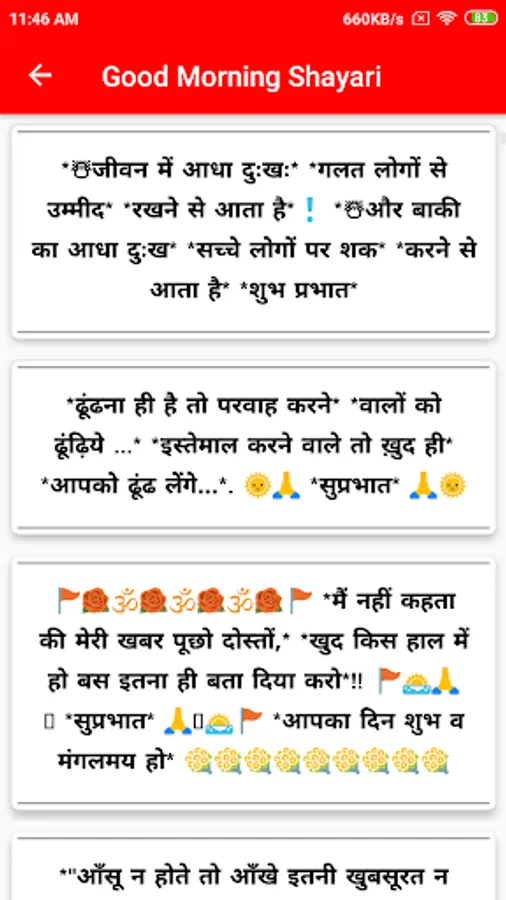 11:46 AM 660KB/s 83
Good Morning Shayari
*☃जीवन में आधा दुःखः* *गलत लोगों से
उम्मीद* *रखने से आता है*❗ *☃और बाकी
का आधा दुःख* *सच्चे लोगों पर शक* *करने से
आता है* *शुभ प्रभात*
*ढूंढना ही है तो परवाह करने* *वालों को
ढूंढ़िये ...* *इस्तेमाल करने वाले तो ख़ुद ही*
*आपको ढूंढ लेंगे...*. 🌞🙏 *सुप्रभात* 🙏🌞
🚩🌹🕉🌹🕉🌹🕉🌹🚩 *मैं नहीं कहता
की मेरी खबर पूछो दोस्तों,* *खुद किस हाल में
हो बस इतना ही बता दिया करो*!! 🚩🌅🙏
▯ *सुप्रभात* 🙏▯🌅🚩 *आपका दिन शुभ व
मंगलमय हो* 💐💐💐💐💐💐💐💐💐
*"आँसू न होते तो आँखे इतनी खुबसूरत न